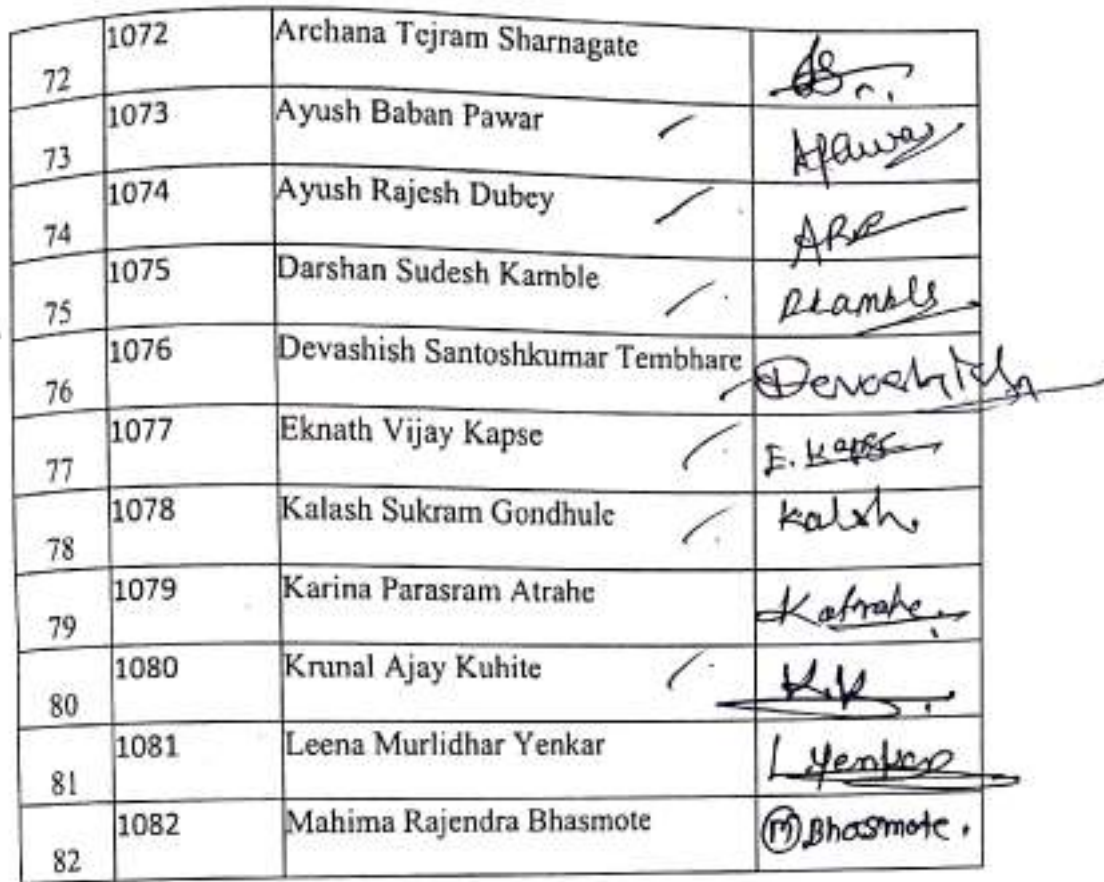 1072 Archana Tejram Sharnagate
72
1073 Ayush Baban Pawar APawar
73
1074 Ayush Rajesh Dubey
74
1075 Darshan Sudesh Kamble DKamble
75
1076 Devashish Santoshkumar Tembhare Devashish
76
1077 Eknath Vijay Kapse E. Kapse
77
1078 Kalash Sukram Gondhule Kalsh.
78
1079 Karina Parasram Atrahe Katrahe.
79
1080 Krunal Ajay Kuhite K.K.
80
1081 Leena Murlidhar Yenkar LYenkar
81
1082 Mahima Rajendra Bhasmote M Bhasmote.
82